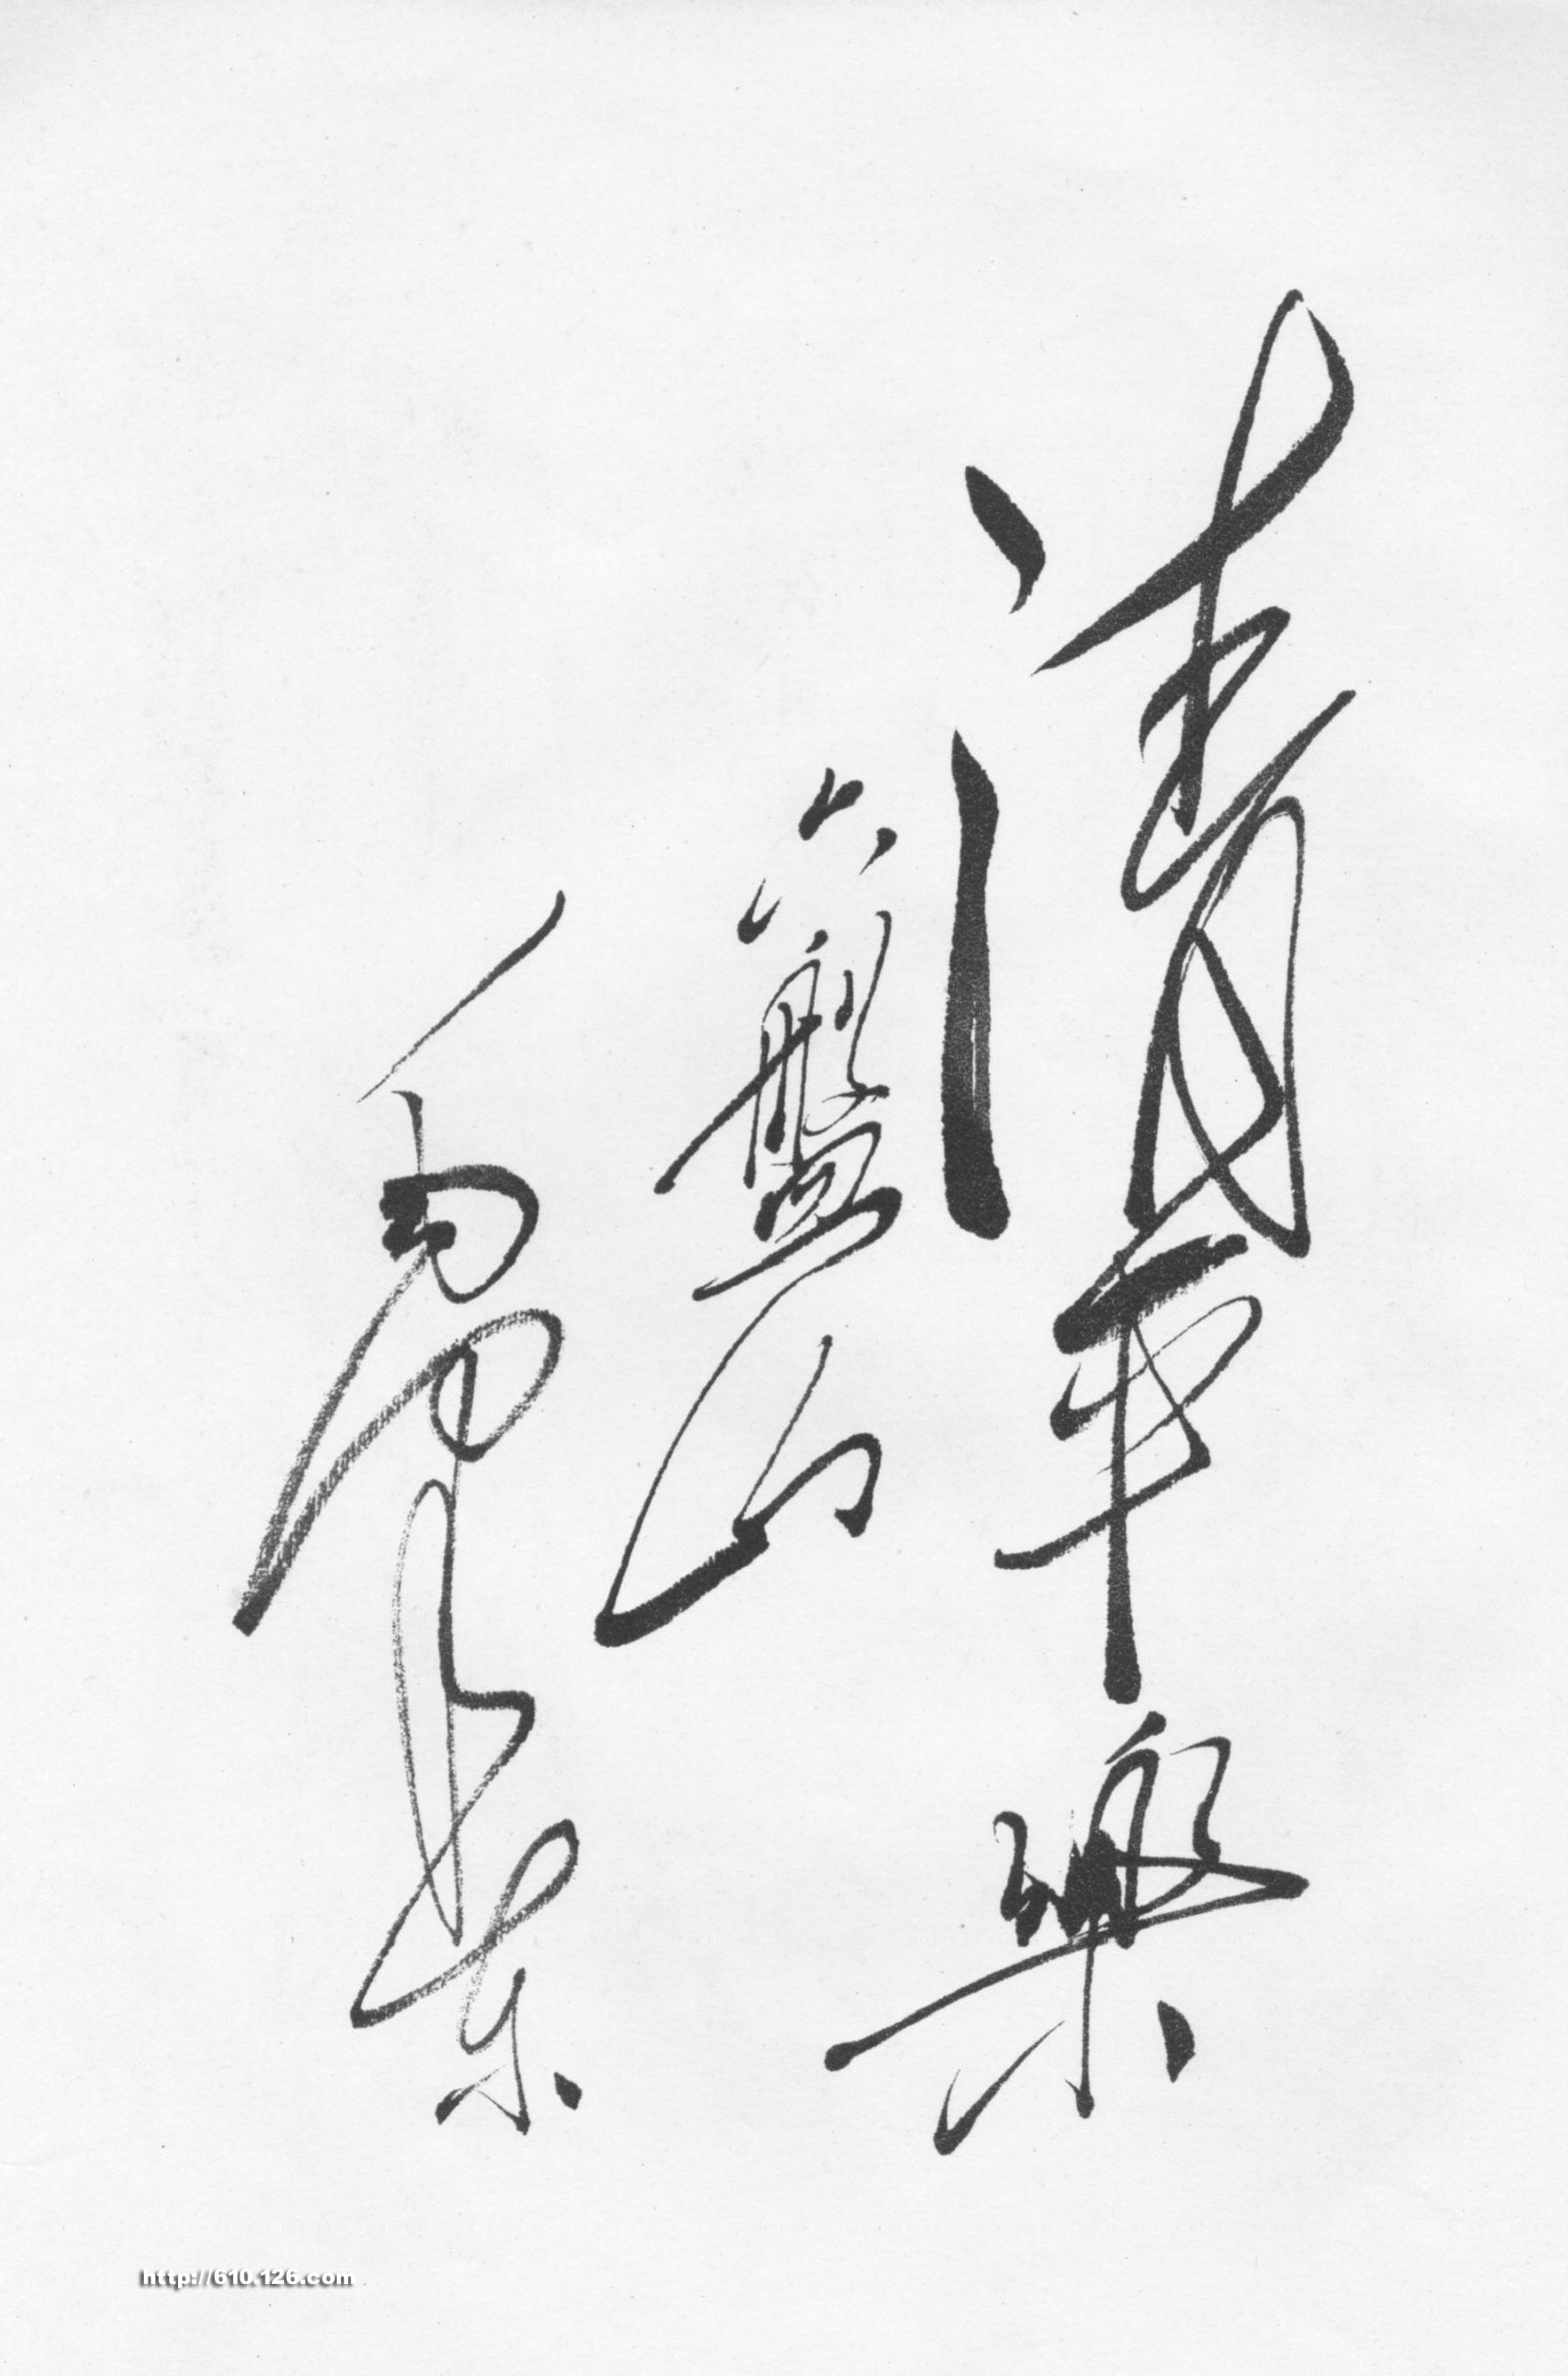 清平樂
六盤山
毛澤東
http://610.126.com